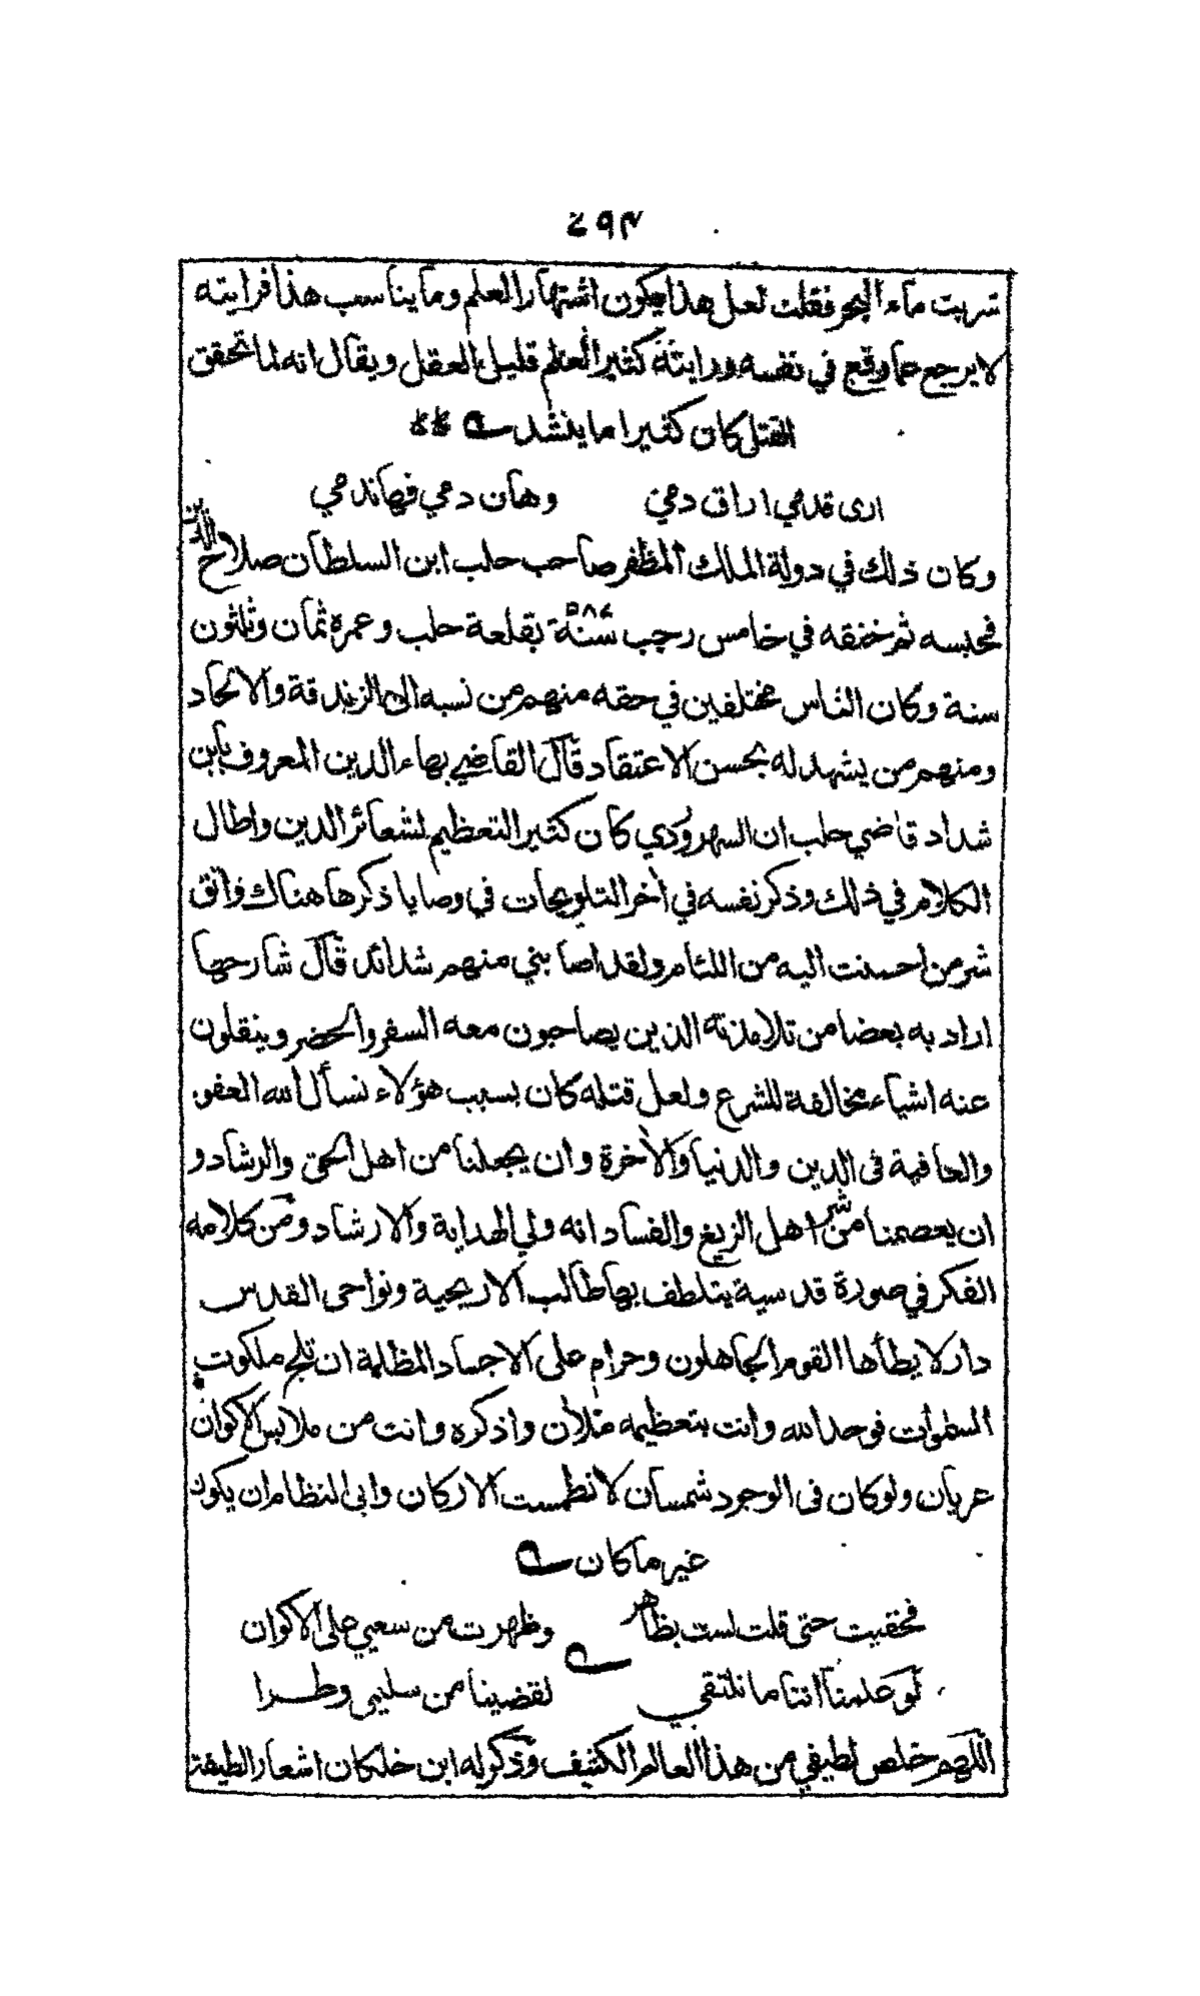 ٤٩٣
شربت ماء البحر فقلت لعل هذا يكون اشتهار العلم وما يناسب هذا فرايته
لا يرجع عما وقع في نفسه ورايته كثير العلم قليل العقل ويقال انه لما تحقق
القتل كان كثيرا ما ينشد
ارى قدمي اراق دمي وهان دمي فها ندمي
وكان ذلك في دولة الملك المظفر صاحب حلب ابن السلطان صلاح الدين
فحبسه ثم خنقه في خامس رجب سنة ٥٨٤ بقلعة حلب وعمره ثمان وثلثون
سنة وكان الناس مختلفين في حقه منهم من نسبه الى الزندقة والالحاد
ومنهم من يشهد له بحسن الاعتقاد قال القاضي بهاء الدين المعروف بابن
شداد قاضي حلب ان السهروردي كان كثير التعظيم لشعائر الدين واطال
الكلام في ذلك وذكر نفسه في اخر التلويحات في وصايا ذكرها هناك واتق
شر من احسنت اليه من اللئام ولقد اصابني منهم شدائد قال شارحها
اراد به بعضا من تلامذته الذين يصاحبون معه السفر والحضر وينقلون
عنه اشياء مخالفة للشرع ولعل قتله كان بسبب هؤلاء نسأل الله العفو
والعافية في الدين والدنيا والآخرة وان يجعلنا من اهل الحق والرشاد و
ان يعصمنا من شر اهل الزيغ والفساد انه ولي الهداية والارشاد ومن كلامه
الفكر في صورة قدسية يتلطف بها طالب الاريحية ونواحى القدس
دار لا يطأها القوم الجاهلون وحرام على الاجساد المظلمة ان تلج ملكوت
السموات فوحد الله وانت بتعظيمه ملأن واذكره وانت من ملابس الاكوان
عريان ولو كان فى الوجود شمسان لانطمست الاركان وابى النظام ان يكون
غير ما كان
فخفيت حتى قلت لست بظاهر وظهرت من سعيي على الاكوان
لو علمنا اننا ما نلتقي لقضينا من سليمى وطرا
اللهم خلص لطيفي من هذا العالم الكثيف وذكر له ابن خلكان اشعارا لطيفة